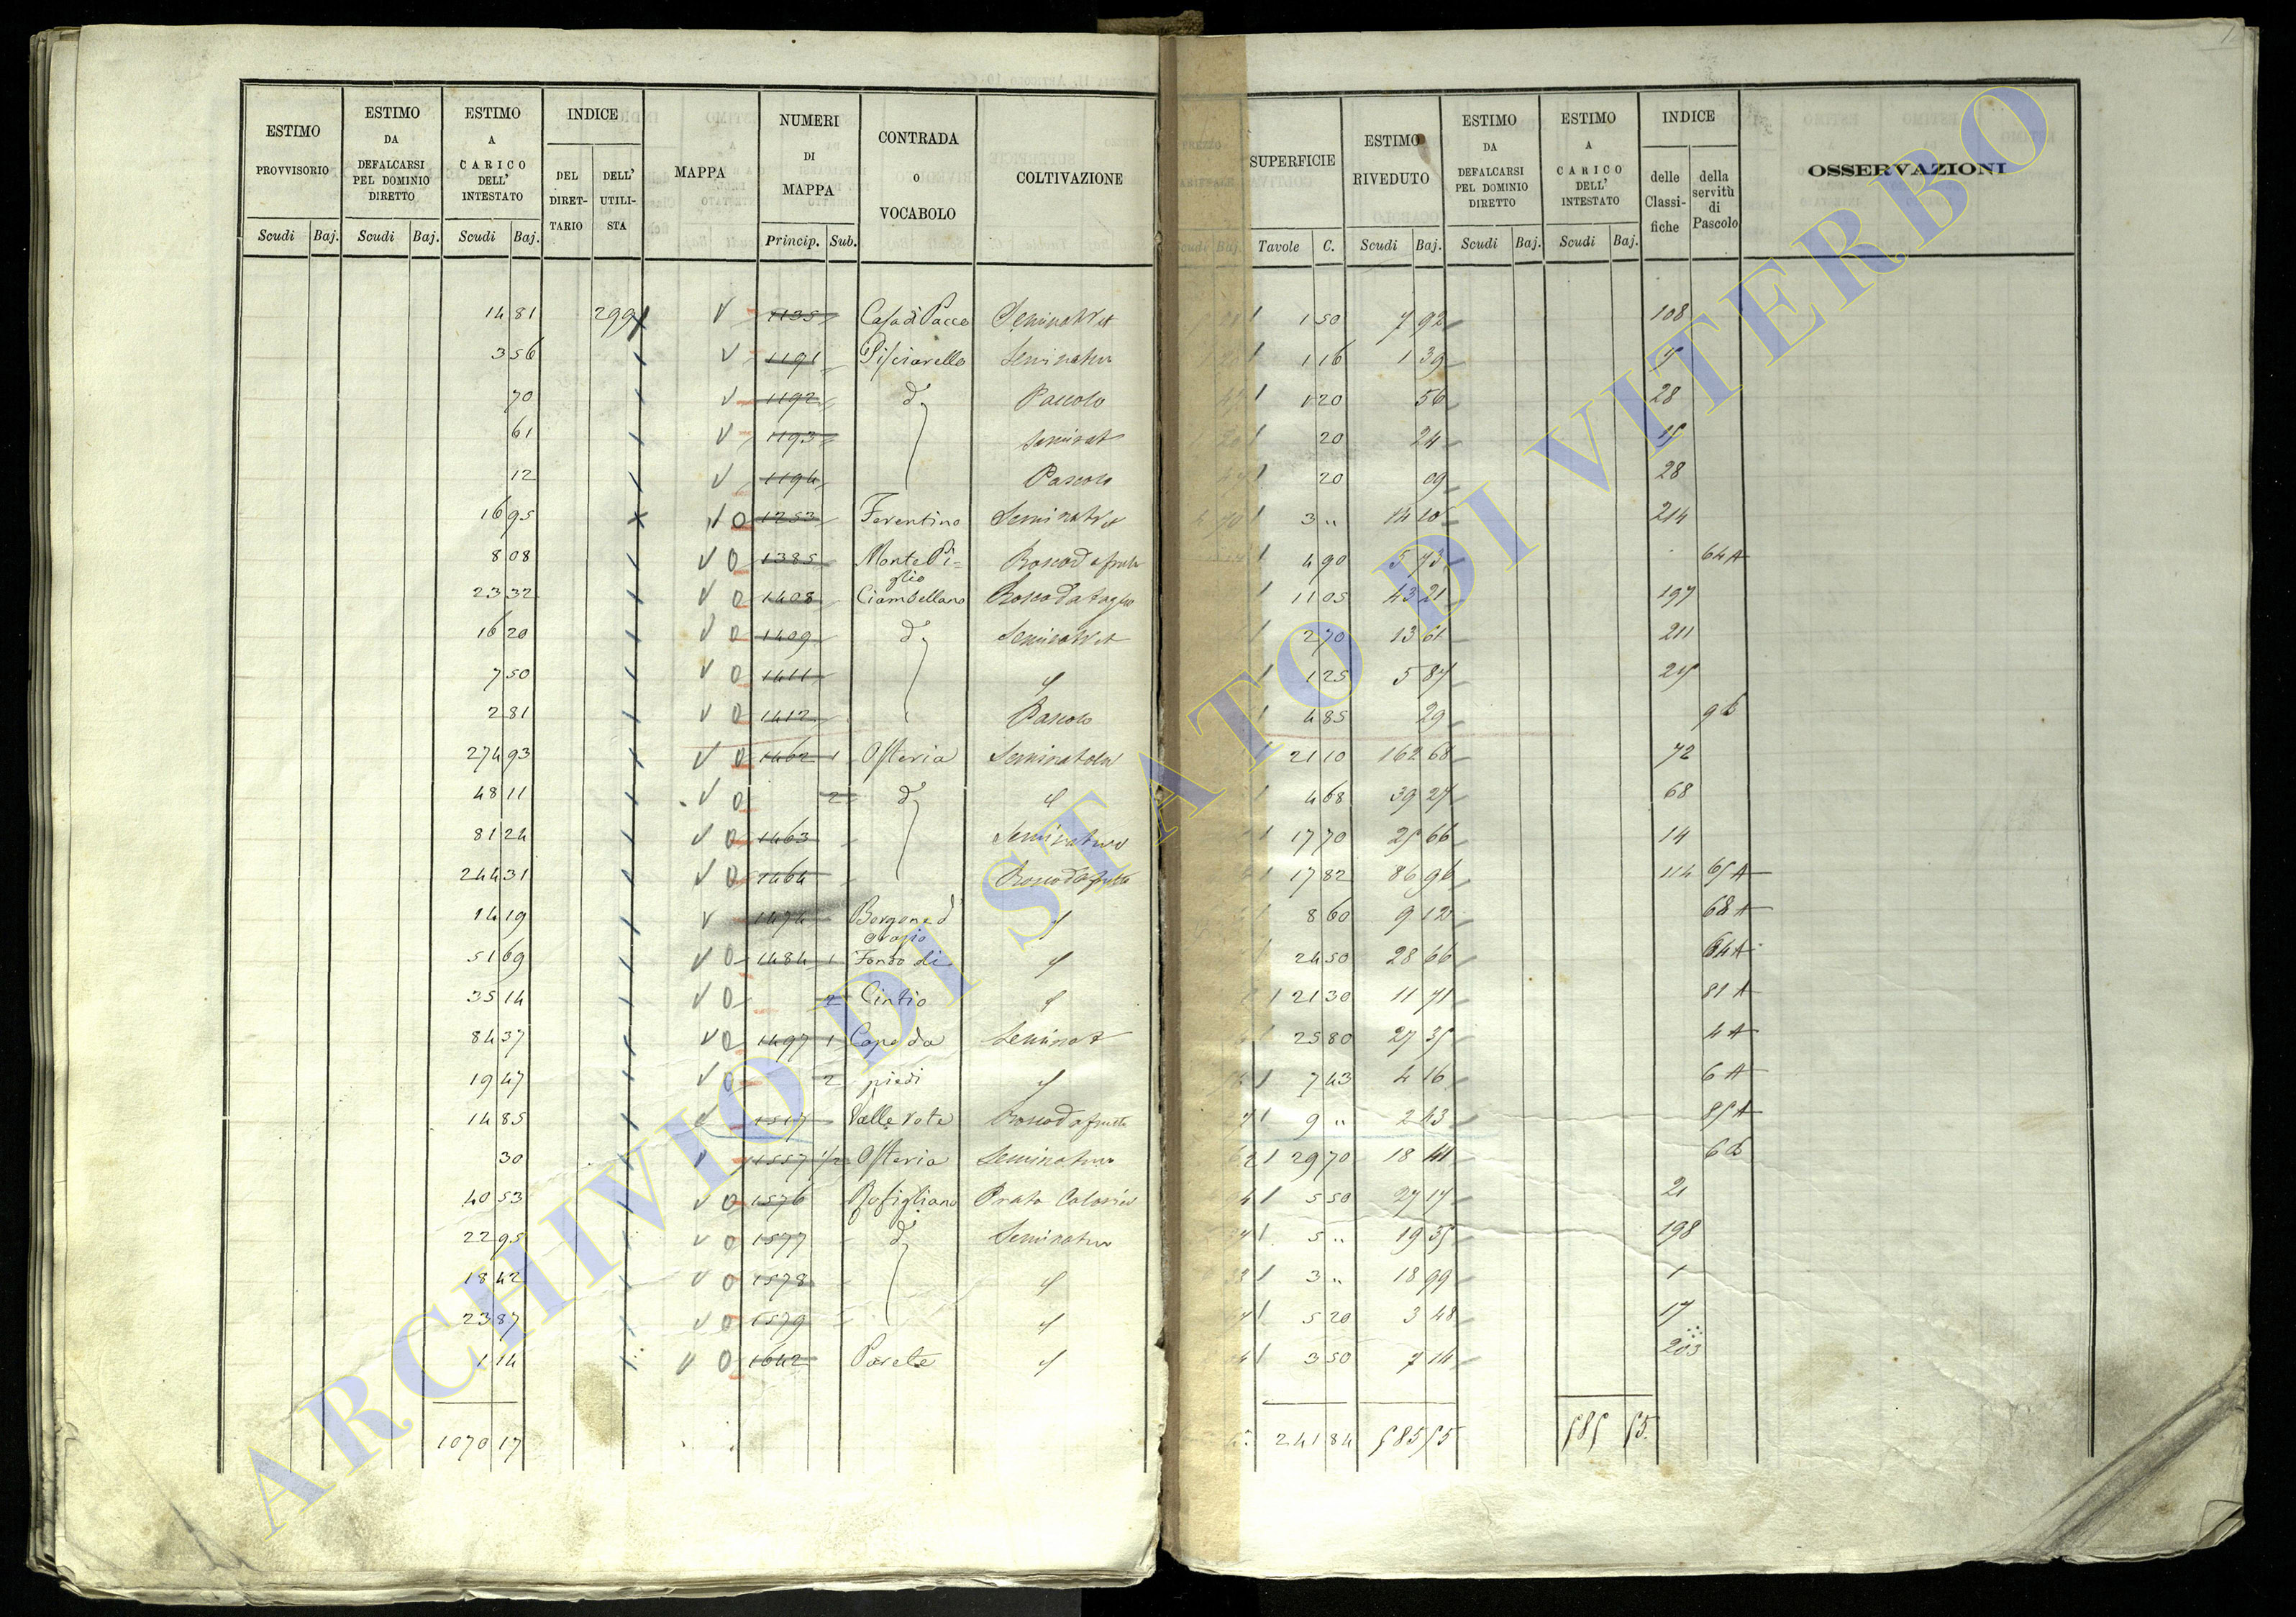 ESTIMO PROVVISORIO | ESTIMO DA DEFALCARSI PEL DOMINIO DIRETTO | ESTIMO A CARICO DELL' INTESTATO | INDICE DEL DIRETTARIO | DELL' UTILISTA | MAPPA | NUMERI DI MAPPA | CONTRADA O VOCABOLO | COLTIVAZIONE | SUPERFICIE | ESTIMO RIVEDUTO | ESTIMO DA DEFALCARSI PEL DOMINIO DIRETTO | ESTIMO A CARICO DELL' INTESTATO | INDICE delle Classifiche | della servitù di Pascolo | OSSERVAZIONI
Scudi Baj. Scudi Baj. Scudi Baj. Princip. Sub. Scudi Baj. Tavole C. Scudi Baj. Scudi Baj. Scudi Baj.
14 81 299 V 1135 Casa di Pacce Seminat Vit 1 50 7 92 108
3 56 V 1191 Pisciarello Seminativo 1 16 1 39
70 V 1192 do Pascolo 1 20 56 28
61 V 1193 Seminat 20 24 15
12 V 1194 Pascolo 20 09 28
16 95 V O 1253 Ferentino Seminat Vit 3 " 14 10 214
8 08 V O 1385 Monte Piglio Bosco da frutto 4 90 5 73 64 A
23 32 V O 1408 Ciambellano Bosco da taglio 11 05 43 21 197
16 20 V O 1409 do Seminat Vit 2 70 13 61 211
7 50 V O 1411 1 25 5 87
2 81 V O 1412 Pascolo 4 85 29 9 B
274 93 V O 1462 1 Osteria 21 10 162 68 72
48 11 V O 2 do 4 68 39 27 68
81 24 V O 1463 Seminativo 17 70 25 66 14
244 31 V O 1464 Bosco da frutto 17 82 86 96 114 65 A
14 19 V 1474 8 60 9 12 68 A
51 69 V O 1484 1 Fondo di 24 50 28 66 64 A
35 14 V O 2 Cintio 21 30 11 71 81 A
84 37 V O 1497 1 Capo da Seminat 25 80 27 35 4 A
19 47 V O 2 piedi 7 43 4 16 6 A
14 85 V 1517 Valle Rote Bosco da frutto 9 " 2 43 85 A
30 V 1557 1/2 Osteria Seminativo 29 70 18 41 6 B
40 53 V O 1576 Rosigliano Prato 5 50 27 17 21
22 95 V O 1577 do Seminativo 5 " 19 35 198
18 42 V O 1578 3 " 18 99 1
23 87 V O 1579 5 20 3 48 17
1 14 V O 1642 Parete 3 50 7 14 203
1070 17 241 84 585 55 585 55
ARCHIVIO DI STATO DI VITERBO